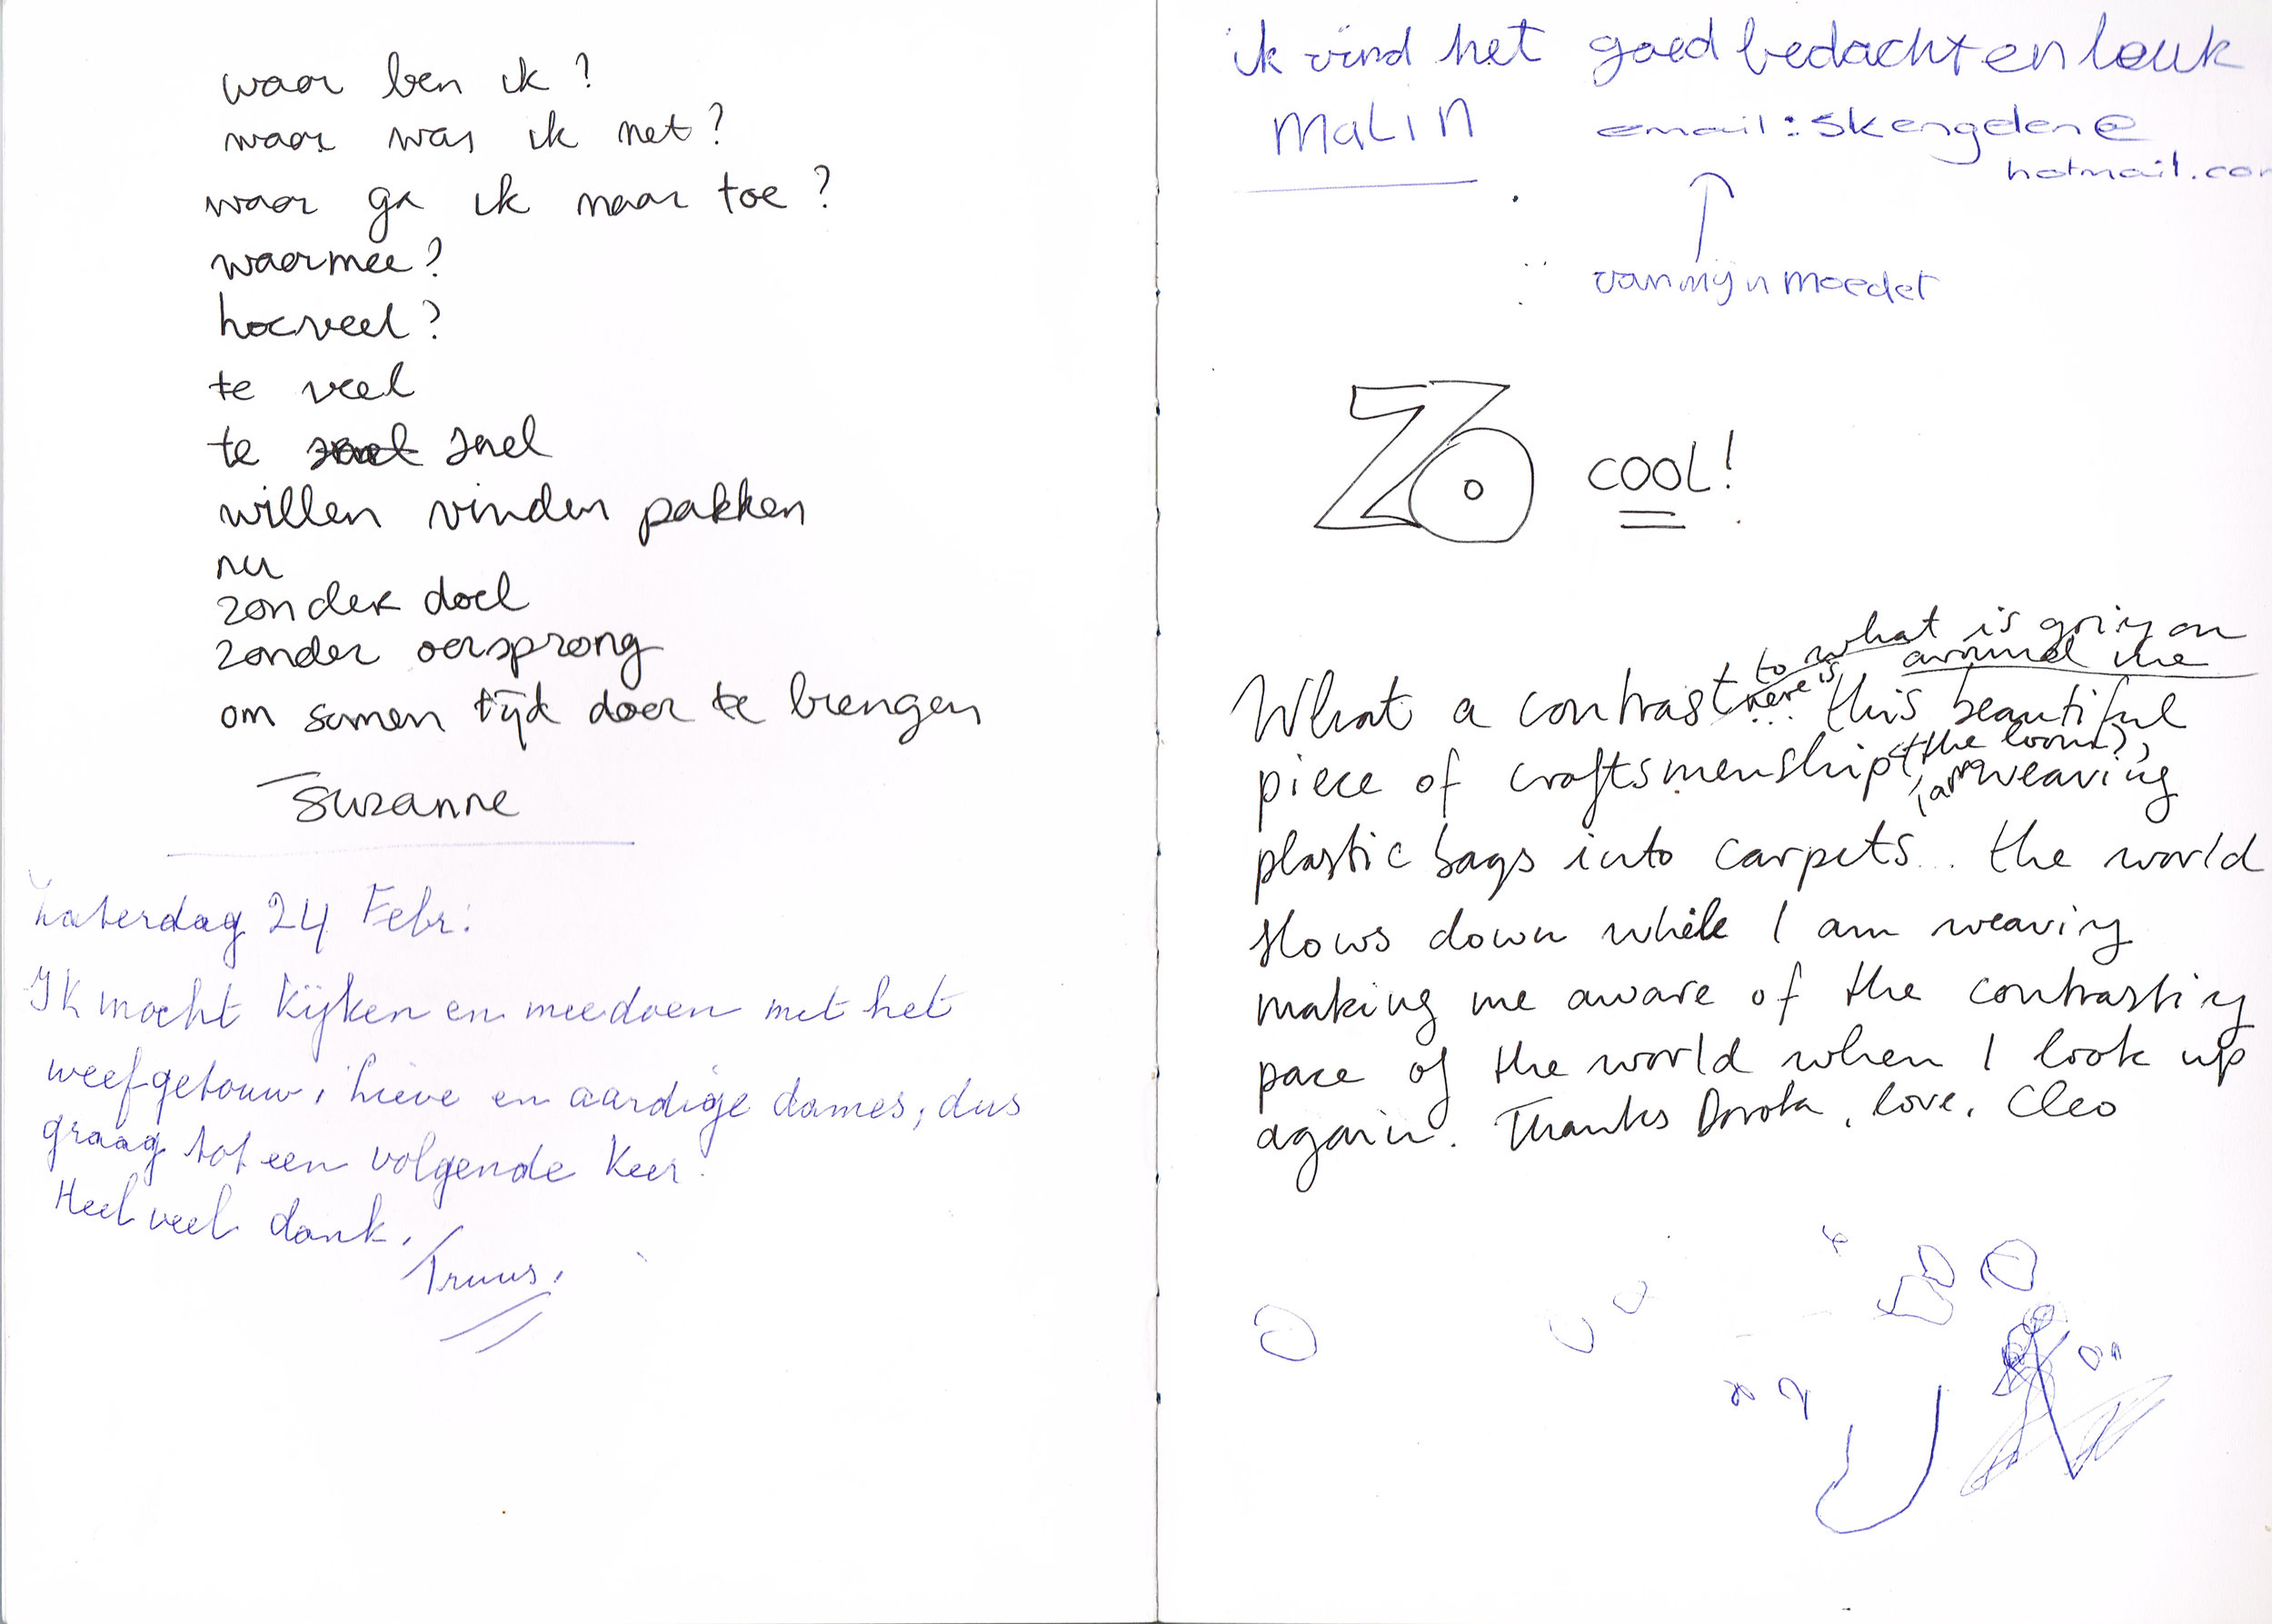 waar ben ik?
waar was ik net?
waar ga ik naar toe?
waarmee?
hoeveel?
te veel
te snel
willen vinden pakken
nu
zonder doel
zonder oersprong
om samen tijd door te brengen
Suzanne
Zaterdag 24 Febr.
Ik mocht kijken en meedoen met het
weefgetouw, lieve en aardige dames, dus
graag tot een volgende keer.
Heel veel dank,
Truus.
ik vind het goed bedacht en leuk
MALIN email: skengelen@
hotmail.com
van mijn moeder
ZO COOL!
to what is going on
around me
What a contrast here is this beautiful
piece of craftsmenship (the loom),
weaving
plastic bags into carpets... the world
slows down while I am weaving
making me aware of the contrasting
pace of the world when I look up
again. Thanks Dorota, love, Cleo